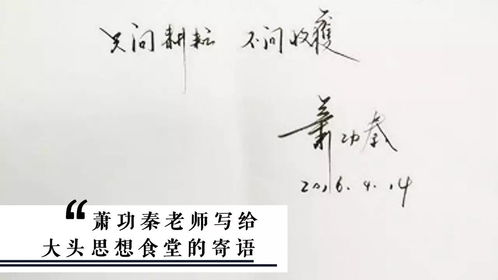 只问耕耘 不问收獲
萧功秦
2016.4.14
“
萧功秦老师写给
大头思想食堂的寄语